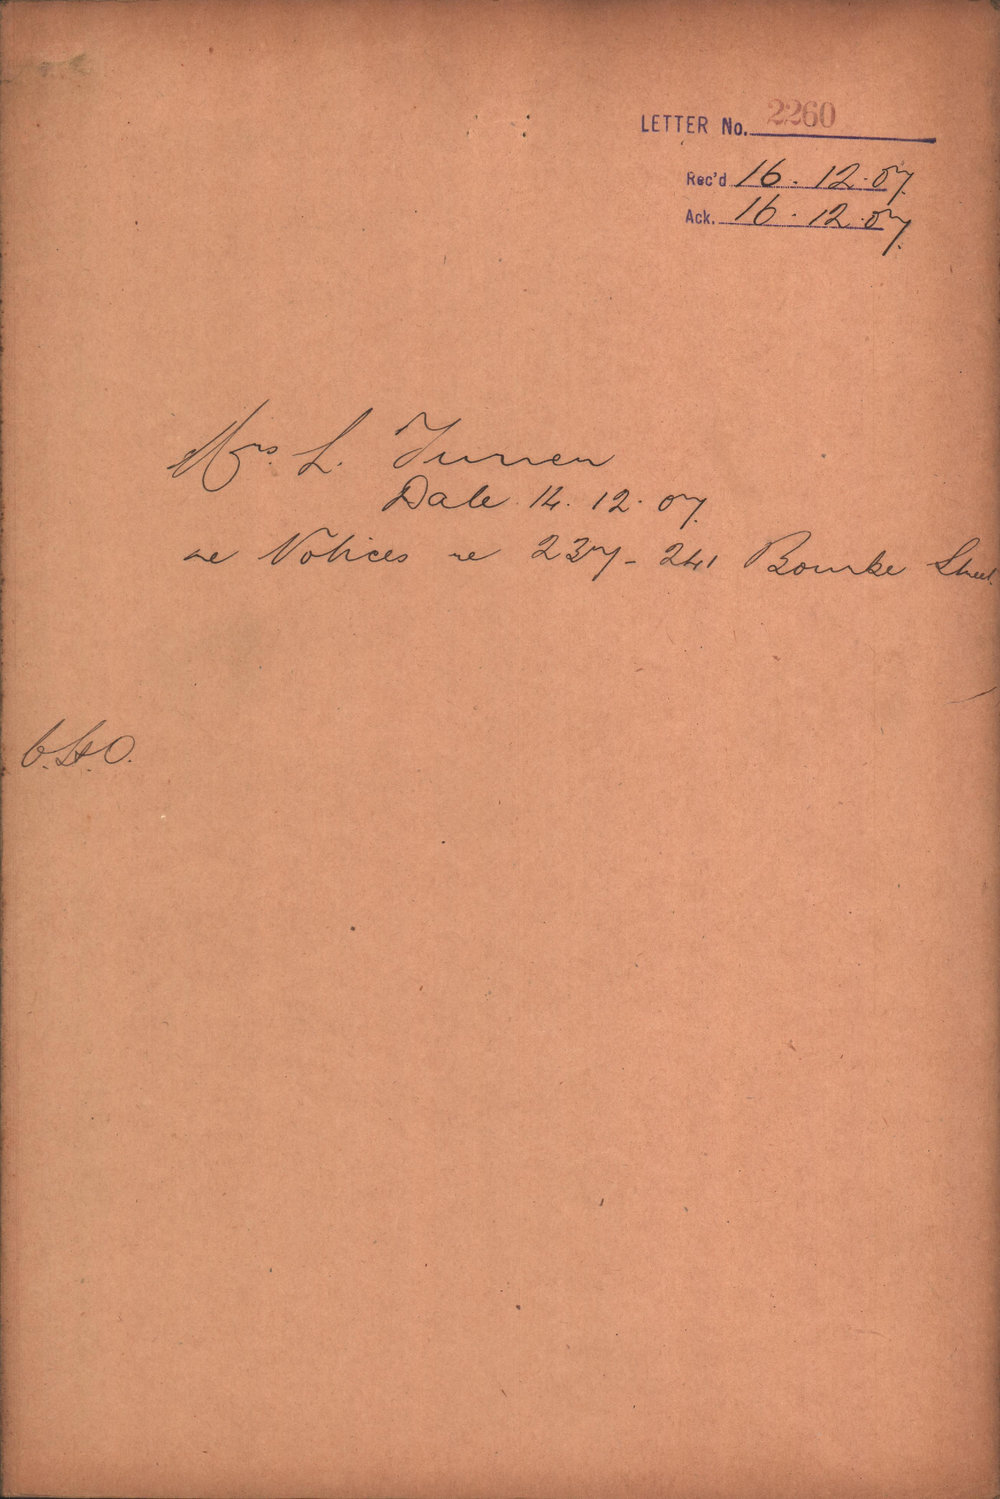 LETTER No. 2260
Rec'd 16.12.07.
Ack. 16.12.07.
Mrs. L. Turner
Date 14.12.07.
re Notices re 237-241 Bourke Street.
C.H.O.